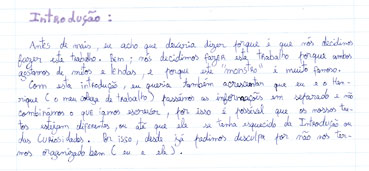 Introdução:
Antes de mais, eu acho que deveria dizer porque é que nós decidimos
fazer este trabalho. Bem; nós decidimos fazer este trabalho porque ambos
gostamos de mitos e lendas, e porque este "monstro" é muito famoso.
Com esta introdução, eu queria também acrescentar que eu e o Hen-
rique (o meu colega de trabalho) passámos as informações em separado e não
combinámos o que íamos escrever, por isso é possível que os nossos tex-
tos estejam diferentes, ou até que ele se tenha esquecido da Introdução ou
das Curiosidades. Por isso, desde já pedimos desculpa por não nos ter-
mos organizado bem (eu e ele).